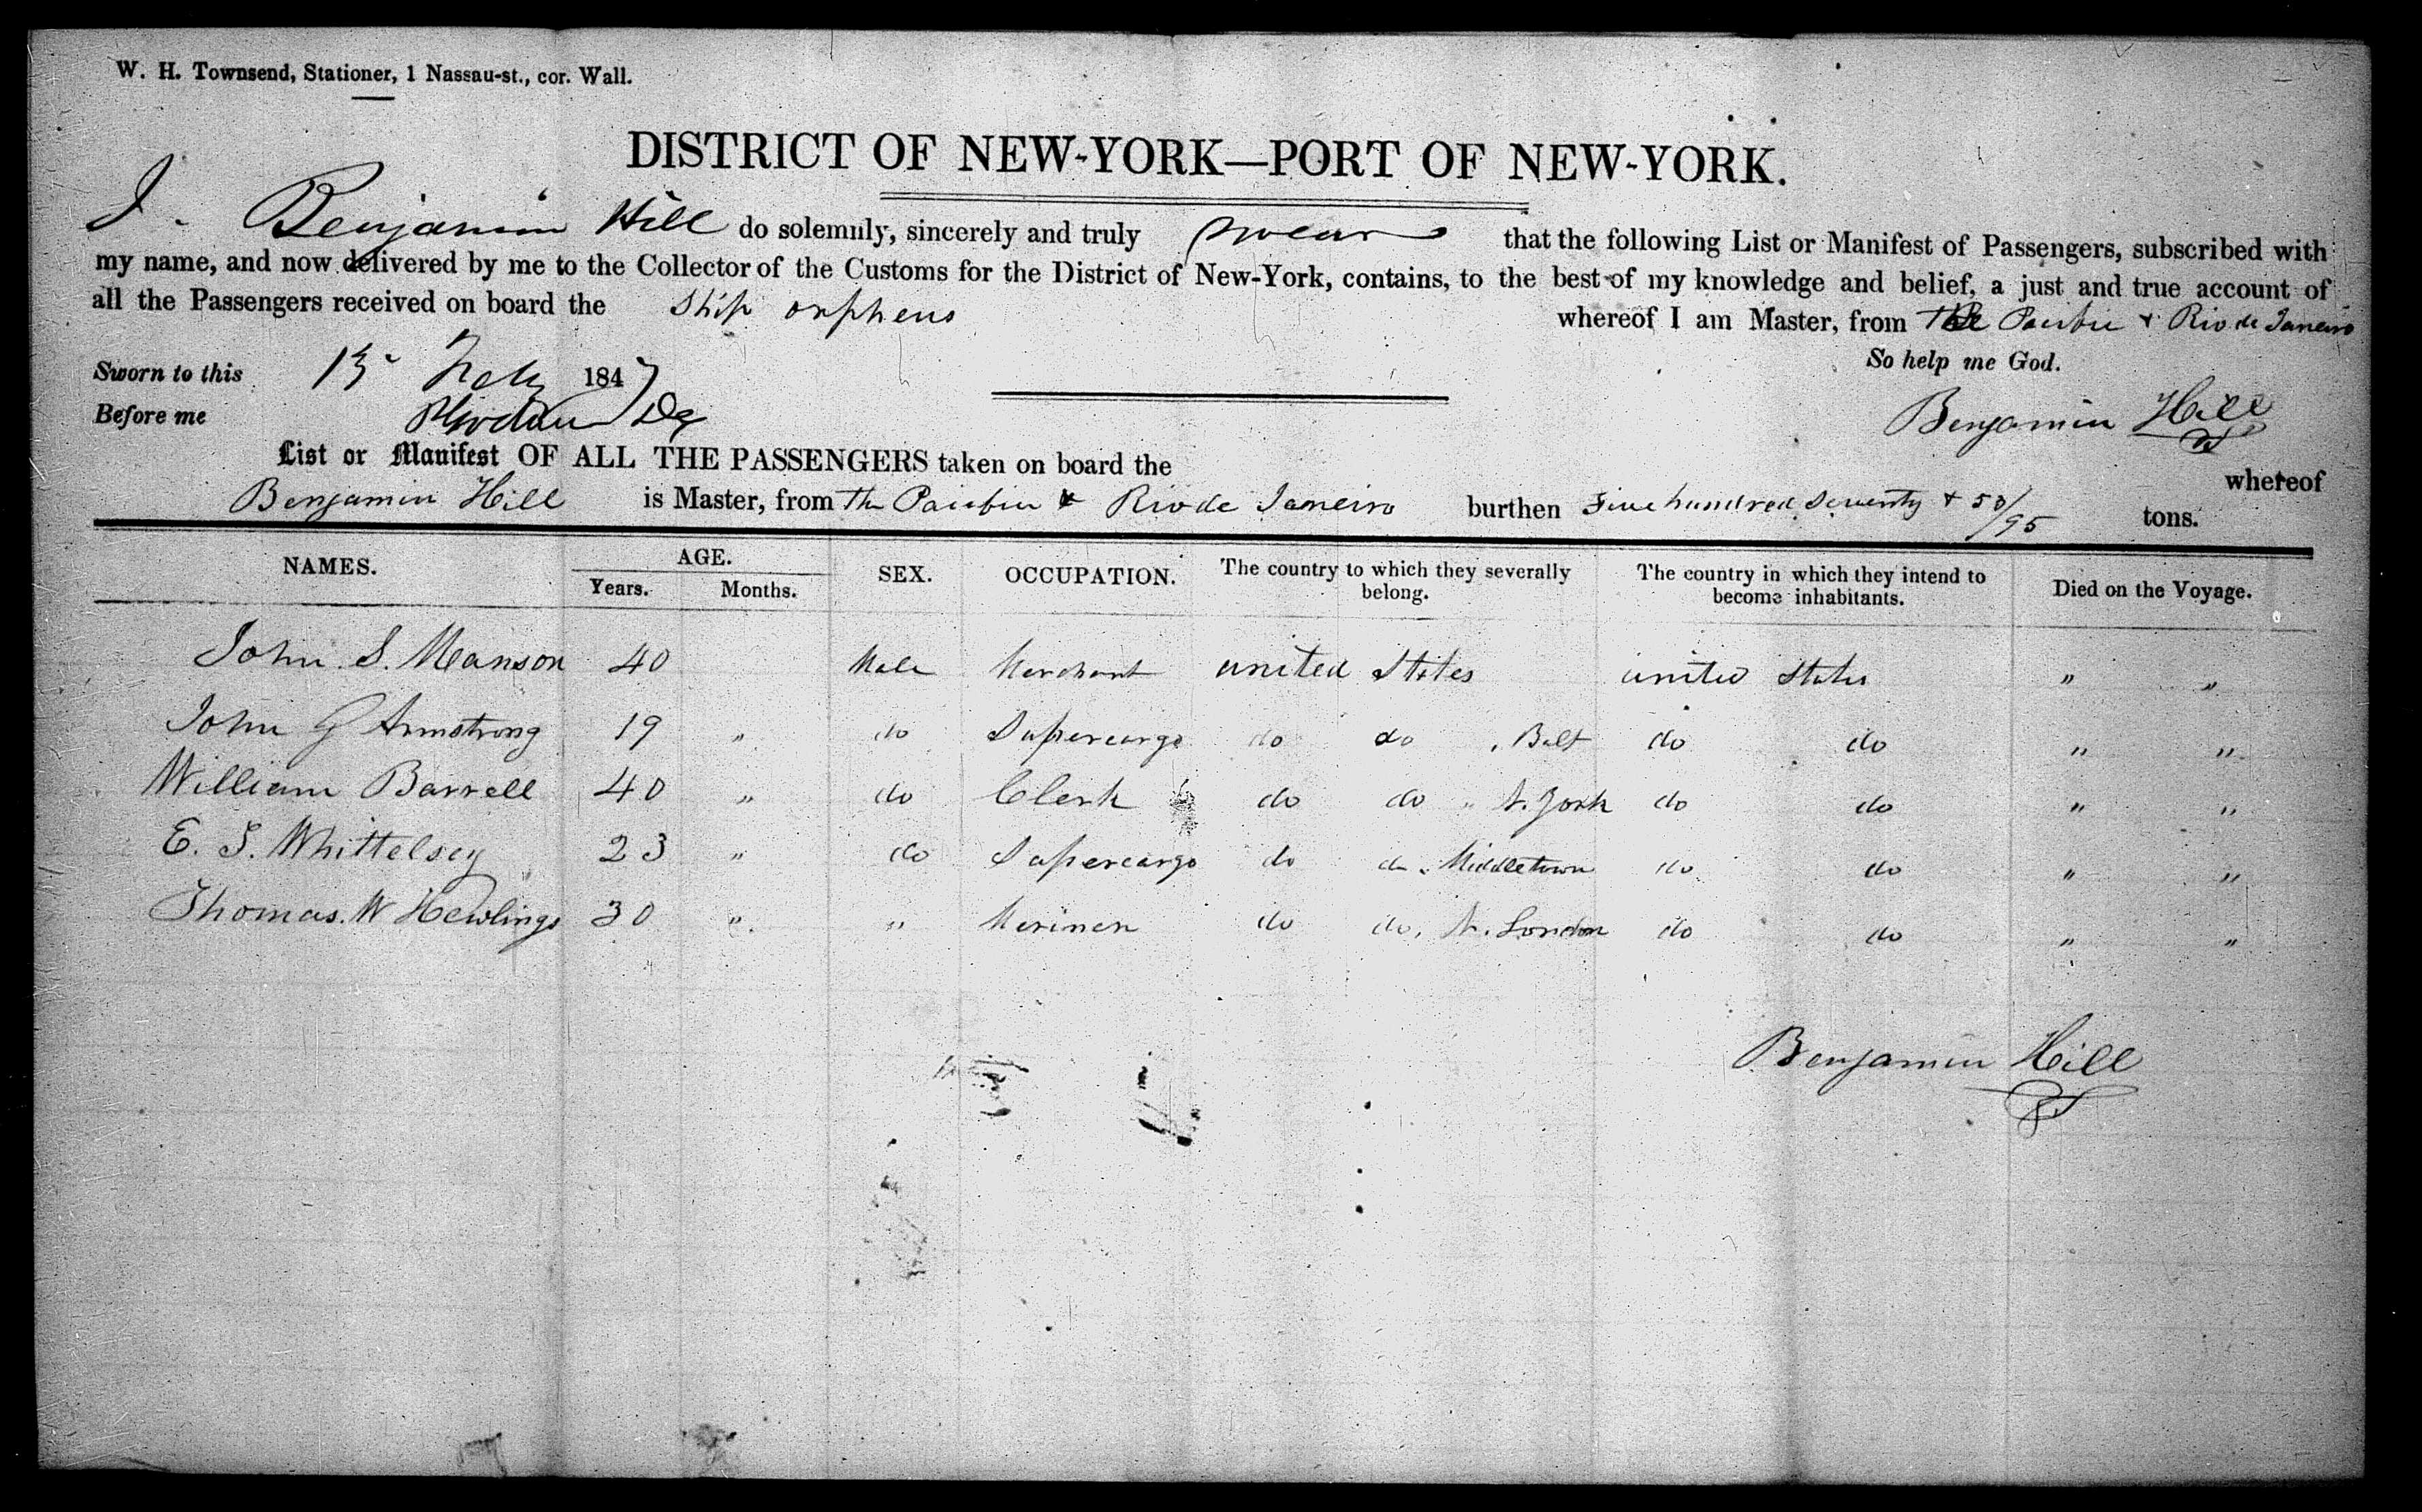 W. H. Townsend, Stationer, 1 Nassau-st., cor. Wall.
DISTRICT OF NEW-YORK—PORT OF NEW-YORK.
I Benjamin Hill do solemnly, sincerely and truly swear that the following List or Manifest of Passengers, subscribed with
my name, and now delivered by me to the Collector of the Customs for the District of New-York, contains, to the best of my knowledge and belief, a just and true account of
all the Passengers received on board the Ship orpheus whereof I am Master, from The Pacific & Rio de Janeiro
So help me God.
Sworn to this 13 Feby 1847
Before me
Benjamin Hill
List or Manifest OF ALL THE PASSENGERS taken on board the whereof
Benjamin Hill is Master, from The Pacific & Rio de Janeiro burthen Five hundred Seventy & 53/95 tons.
NAMES. AGE. SEX. OCCUPATION. The country to which they severally belong. The country in which they intend to become inhabitants. Died on the Voyage.
Years. Months.
John S. Manson 40 Male Merchant united States united States " "
John G Armstrong 19 " do Supercargo do do , Balt do do " "
William Barrell 40 " do Clerk do do " N. York do do " "
E. S. Whittelsey 23 " do Supercargo do do . Middletown do do " "
Thomas. W Hewlings 30 " " Meriner do do, N. London do do " "
Benjamin Hill